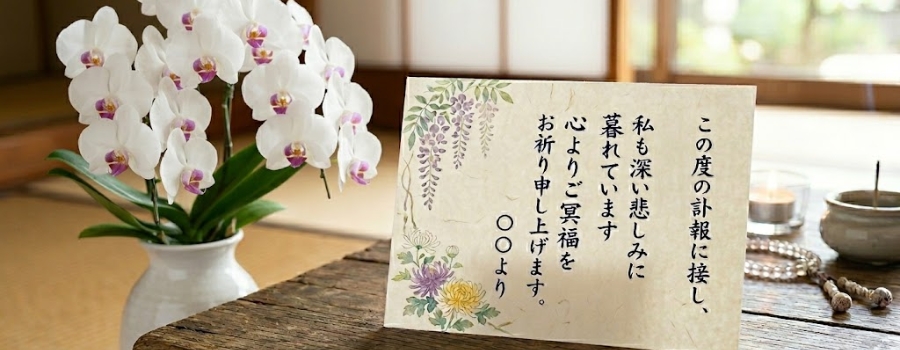 この度の訃報に接し、
私も深い悲しみに
暮れています
心よりご冥福を
お祈り申し上げます。
〇〇より